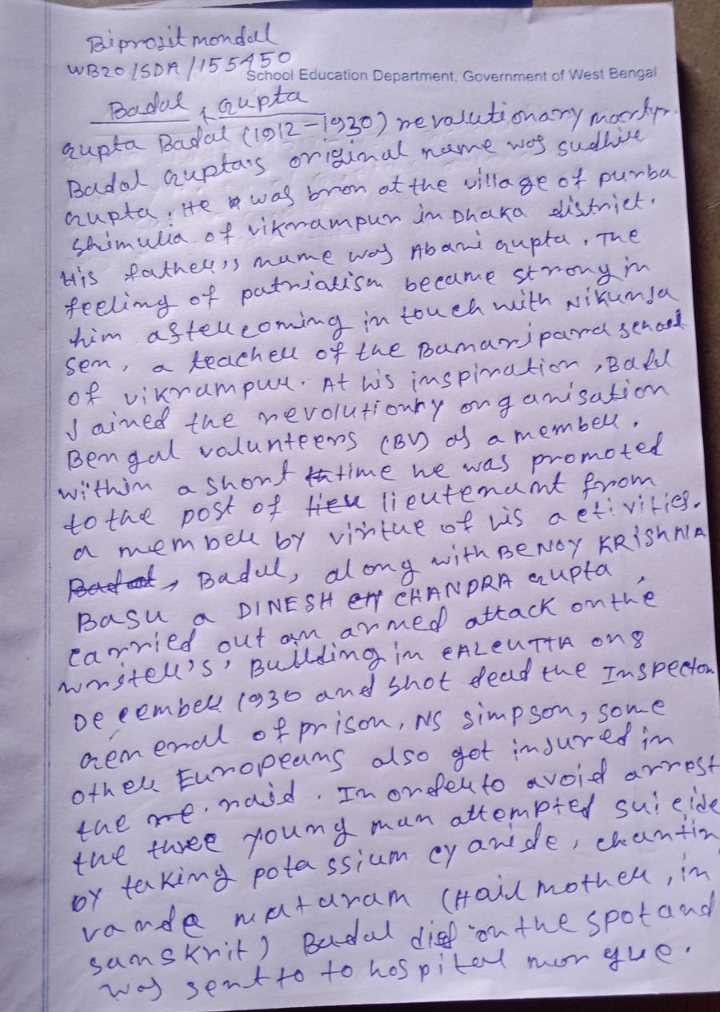 Biprosit mondal
WB20/SDA/155450
School Education Department, Government of West Bengal
Badal Gupta
Gupta Badal (1912-1930) revalutionary
Badal Gupta's original name was Sudhir
Gupta. He was bron at the village of purba
Shimulia of vikrampur in Dhaka district.
His father's name was Abani Gupta. The
feeling of patriatism became strong in
him after coming in touch with Nikunja
Sen, a teacher of the Bamaripara school
of vikrampur. At his inspiration, Badl
Jained the revolutionhy organisation
Bengal valunteers (BV) as a member.
within a short time he was promoted
to the post of lieutenant from
a member by virtue of his activities.
Badul, along with BENOY KRISHNA
BASU a DINESH CHANDRA Gupta,
carried out an armed attack on the
wristers' Building in CALCUTTA on 8
December 1930 and shot dead the Inspector
General of prison, NS Simpson, some
other Europeans also got injured in
the raid. In order to avoid arrest
the three young man attempted suicide
by taking potassium cyanide, chantin
vande mataram (Hail mother, in
sanskrit) Badal died on the spot and
was sent to to hospital morgue.